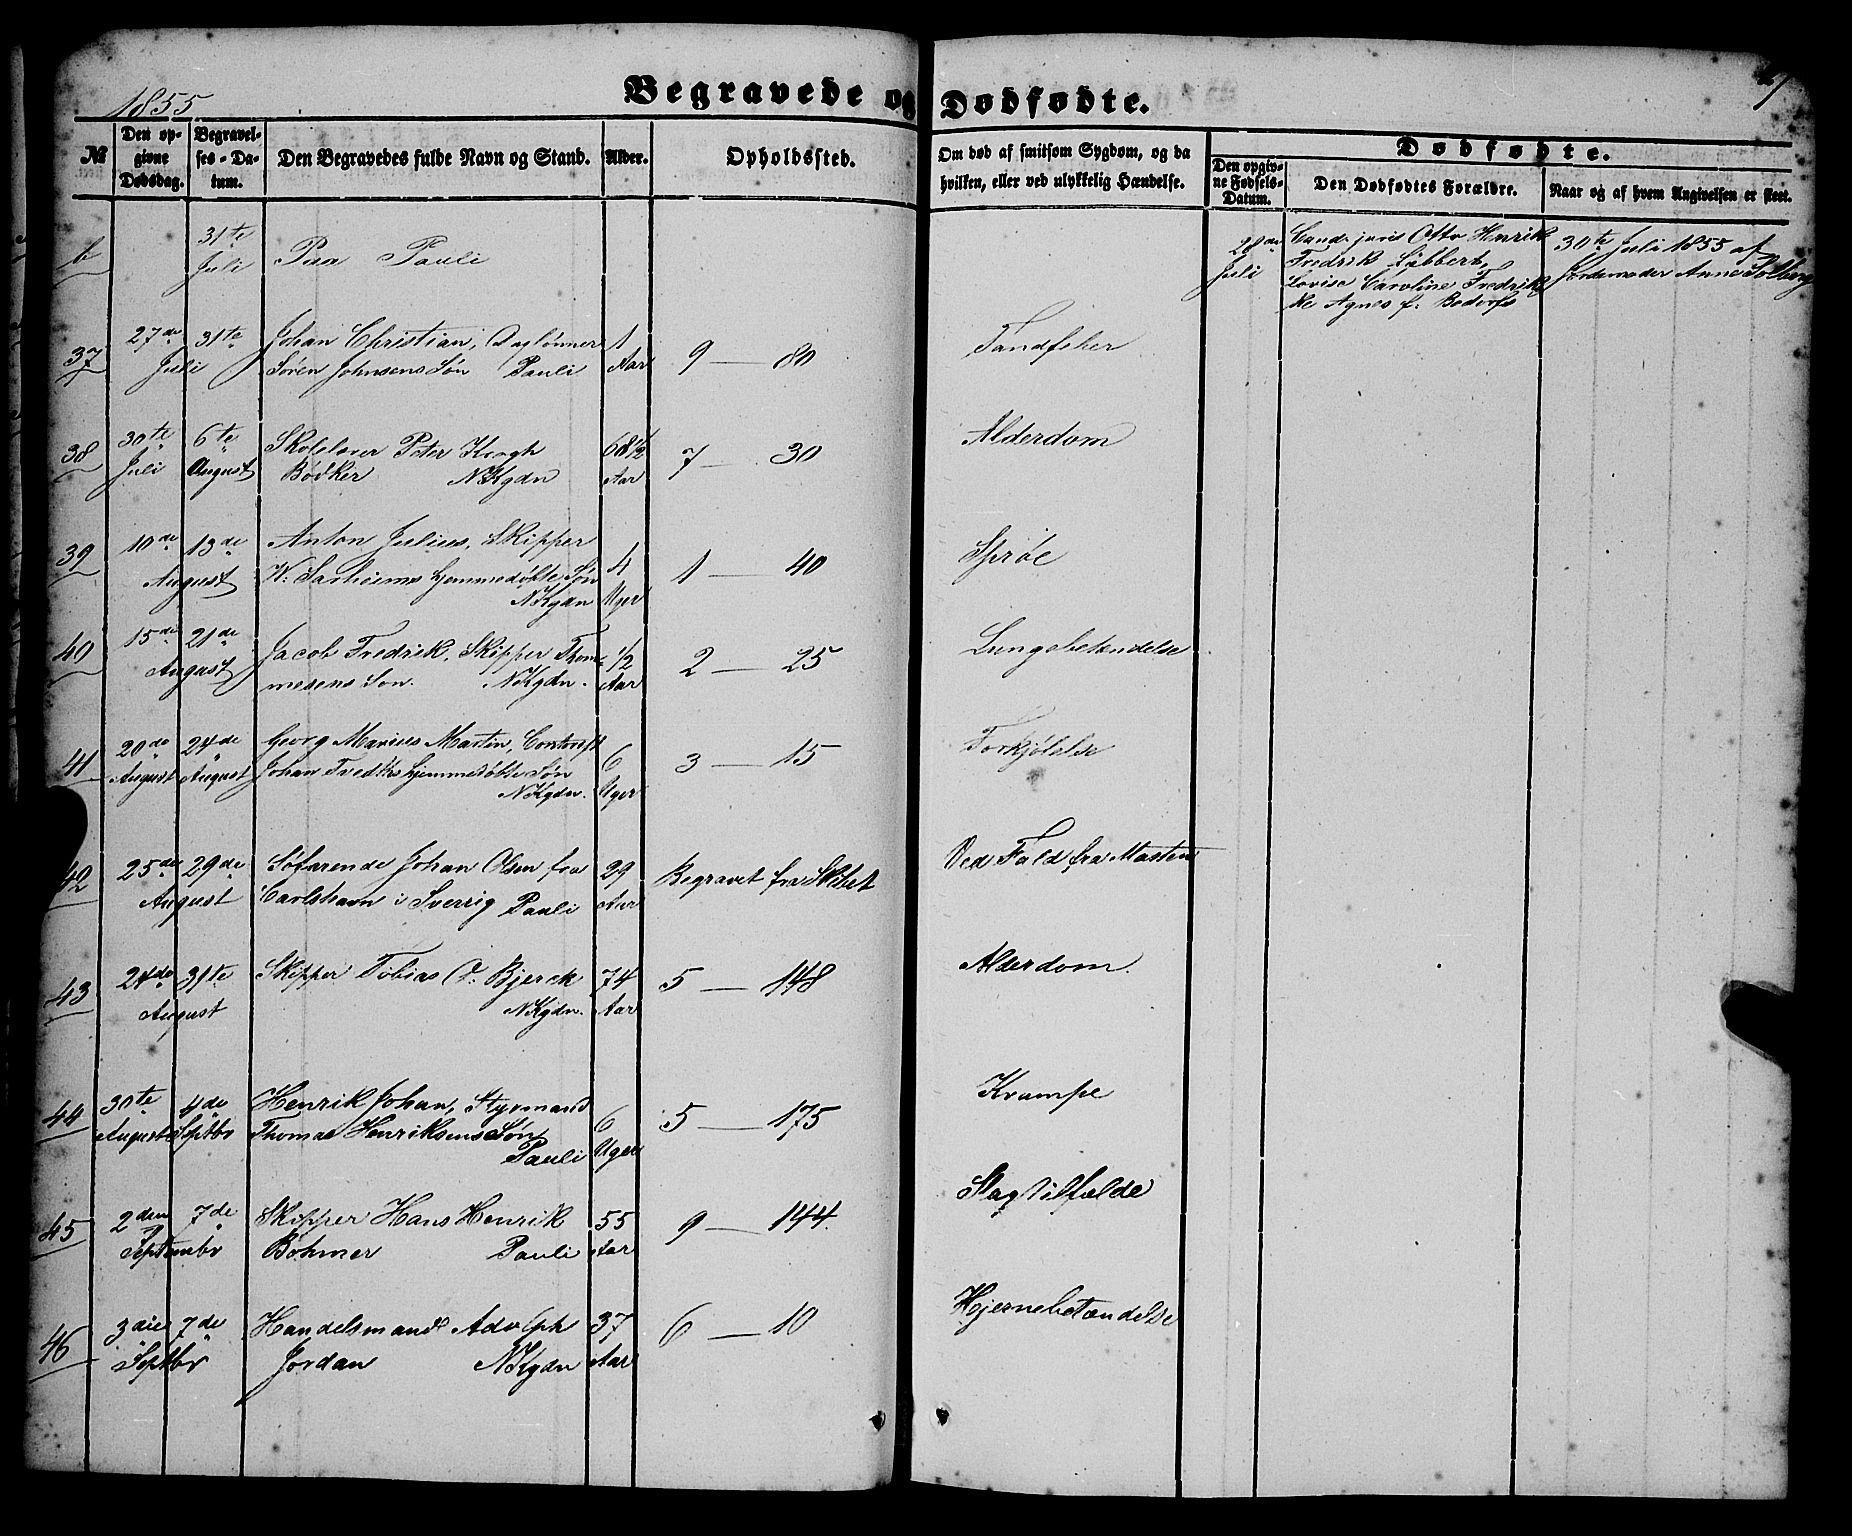 1855
Begravede og Dødfødte.
№
Den op-
givne
Dødsdag.
Begravel-
ses-Da-
tum.
Den Begravedes fulde Navn og Stand.
Alder.
Opholdssted.
Om død af smitsom Sygdom, og da
hvilken, eller ved ulykkelig Hændelse.
Dødfødte.
Den opgiv-
ne Fødsels-
Datum.
Den Dødfødtes Forældre.
Naar og af hvem Angivelsen er skeet.
6
31te
Juli
Paa Pauli
28de
Juli
Cand. juris Otto Henrik
Fredrik Lübbert,
Lovise Caroline Fredrik-
ke Agnes f.
30te Juli 1855 af
Jordemoder Anne Solberg
37
27de 31te
Juli
Johan Christian, Daglønner
Søren Johnsens Søn Pauli
1
Aar
9 — 80
Tandfeber
38
30te
Juli
6te
August
Skolelærer Peter Krogh
Bødker NKgdn
68 1/2
Aar
7 — 30
Alderdom
39
10de 13de
August
Anton Julius, Skipper
W: hjemmedøbte Søn
NKgdn
4
Uger
1 — 40
40
15de 21de
August
Jacob Fredrik, Skipper Thom-
mesens Søn. NKgdn.
1/2
Aar
2 — 25
Lungebetændelse
41
20de
August
24de
August
Georg Marius Martin,
Johan Fredks hjemmedøbte Søn
NKgdn.
6
Uger
3 — 15
Forkjølelse
42
25de 29de
August
Søfarende Johan Olsen fra
Carlshavn i Sverrig Pauli
29
Aar
Begravet fra Skibet
Ved Fald fra Masten
43
24de 31te
August
Skipper Tobias O. Bjerck
NKgdn.
74
Aar
5 — 148
Alderdom.
44
30te
August
4de
Septbr
Henrik Johan, Styrmand
Thomas Henriksens Søn
Pauli
6
Uger
5 — 175
Krampe
45
2den 7de
Septembr
Skipper Hans Henrik
Bøhmer Pauli
55
Aar
9 — 144.
Slagtilfælde
46
3die 7de
Septbr
Handelsmand Adolph
Jordan NKgdn
37
Aar
6 — 10
Hjernebetændelse